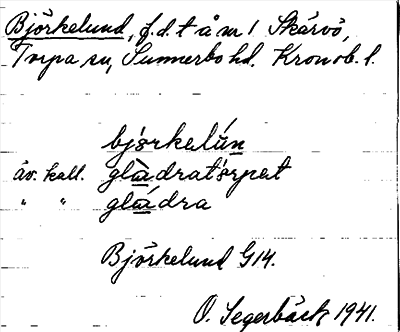 Björkelund, f.d. t å m 1 Skårvö,
Torpa sn, Sunnerbo hd. Kronob. l.
björkelún
äv. kall. glàdratörpet
" " gládra
Björkelund G14.
O. Segerbäck 1941.